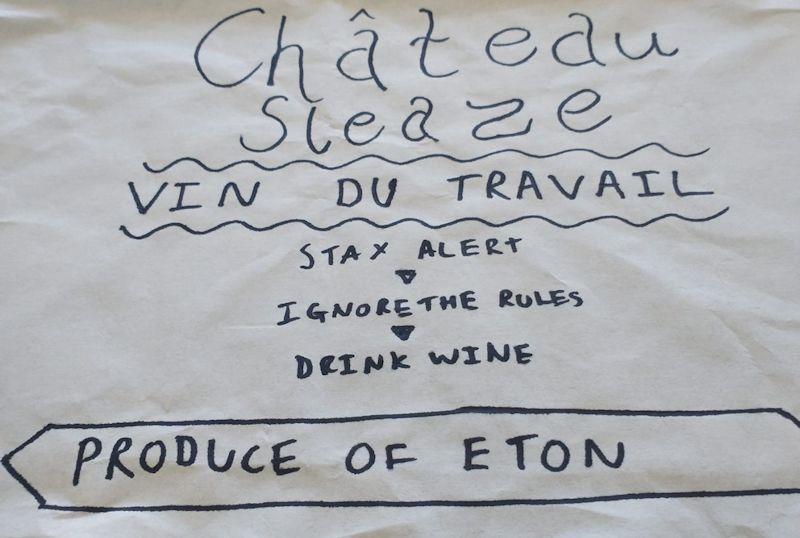 Château
Sleaze
VIN DU TRAVAIL
STAY ALERT
IGNORE THE RULES
DRINK WINE
PRODUCE OF ETON